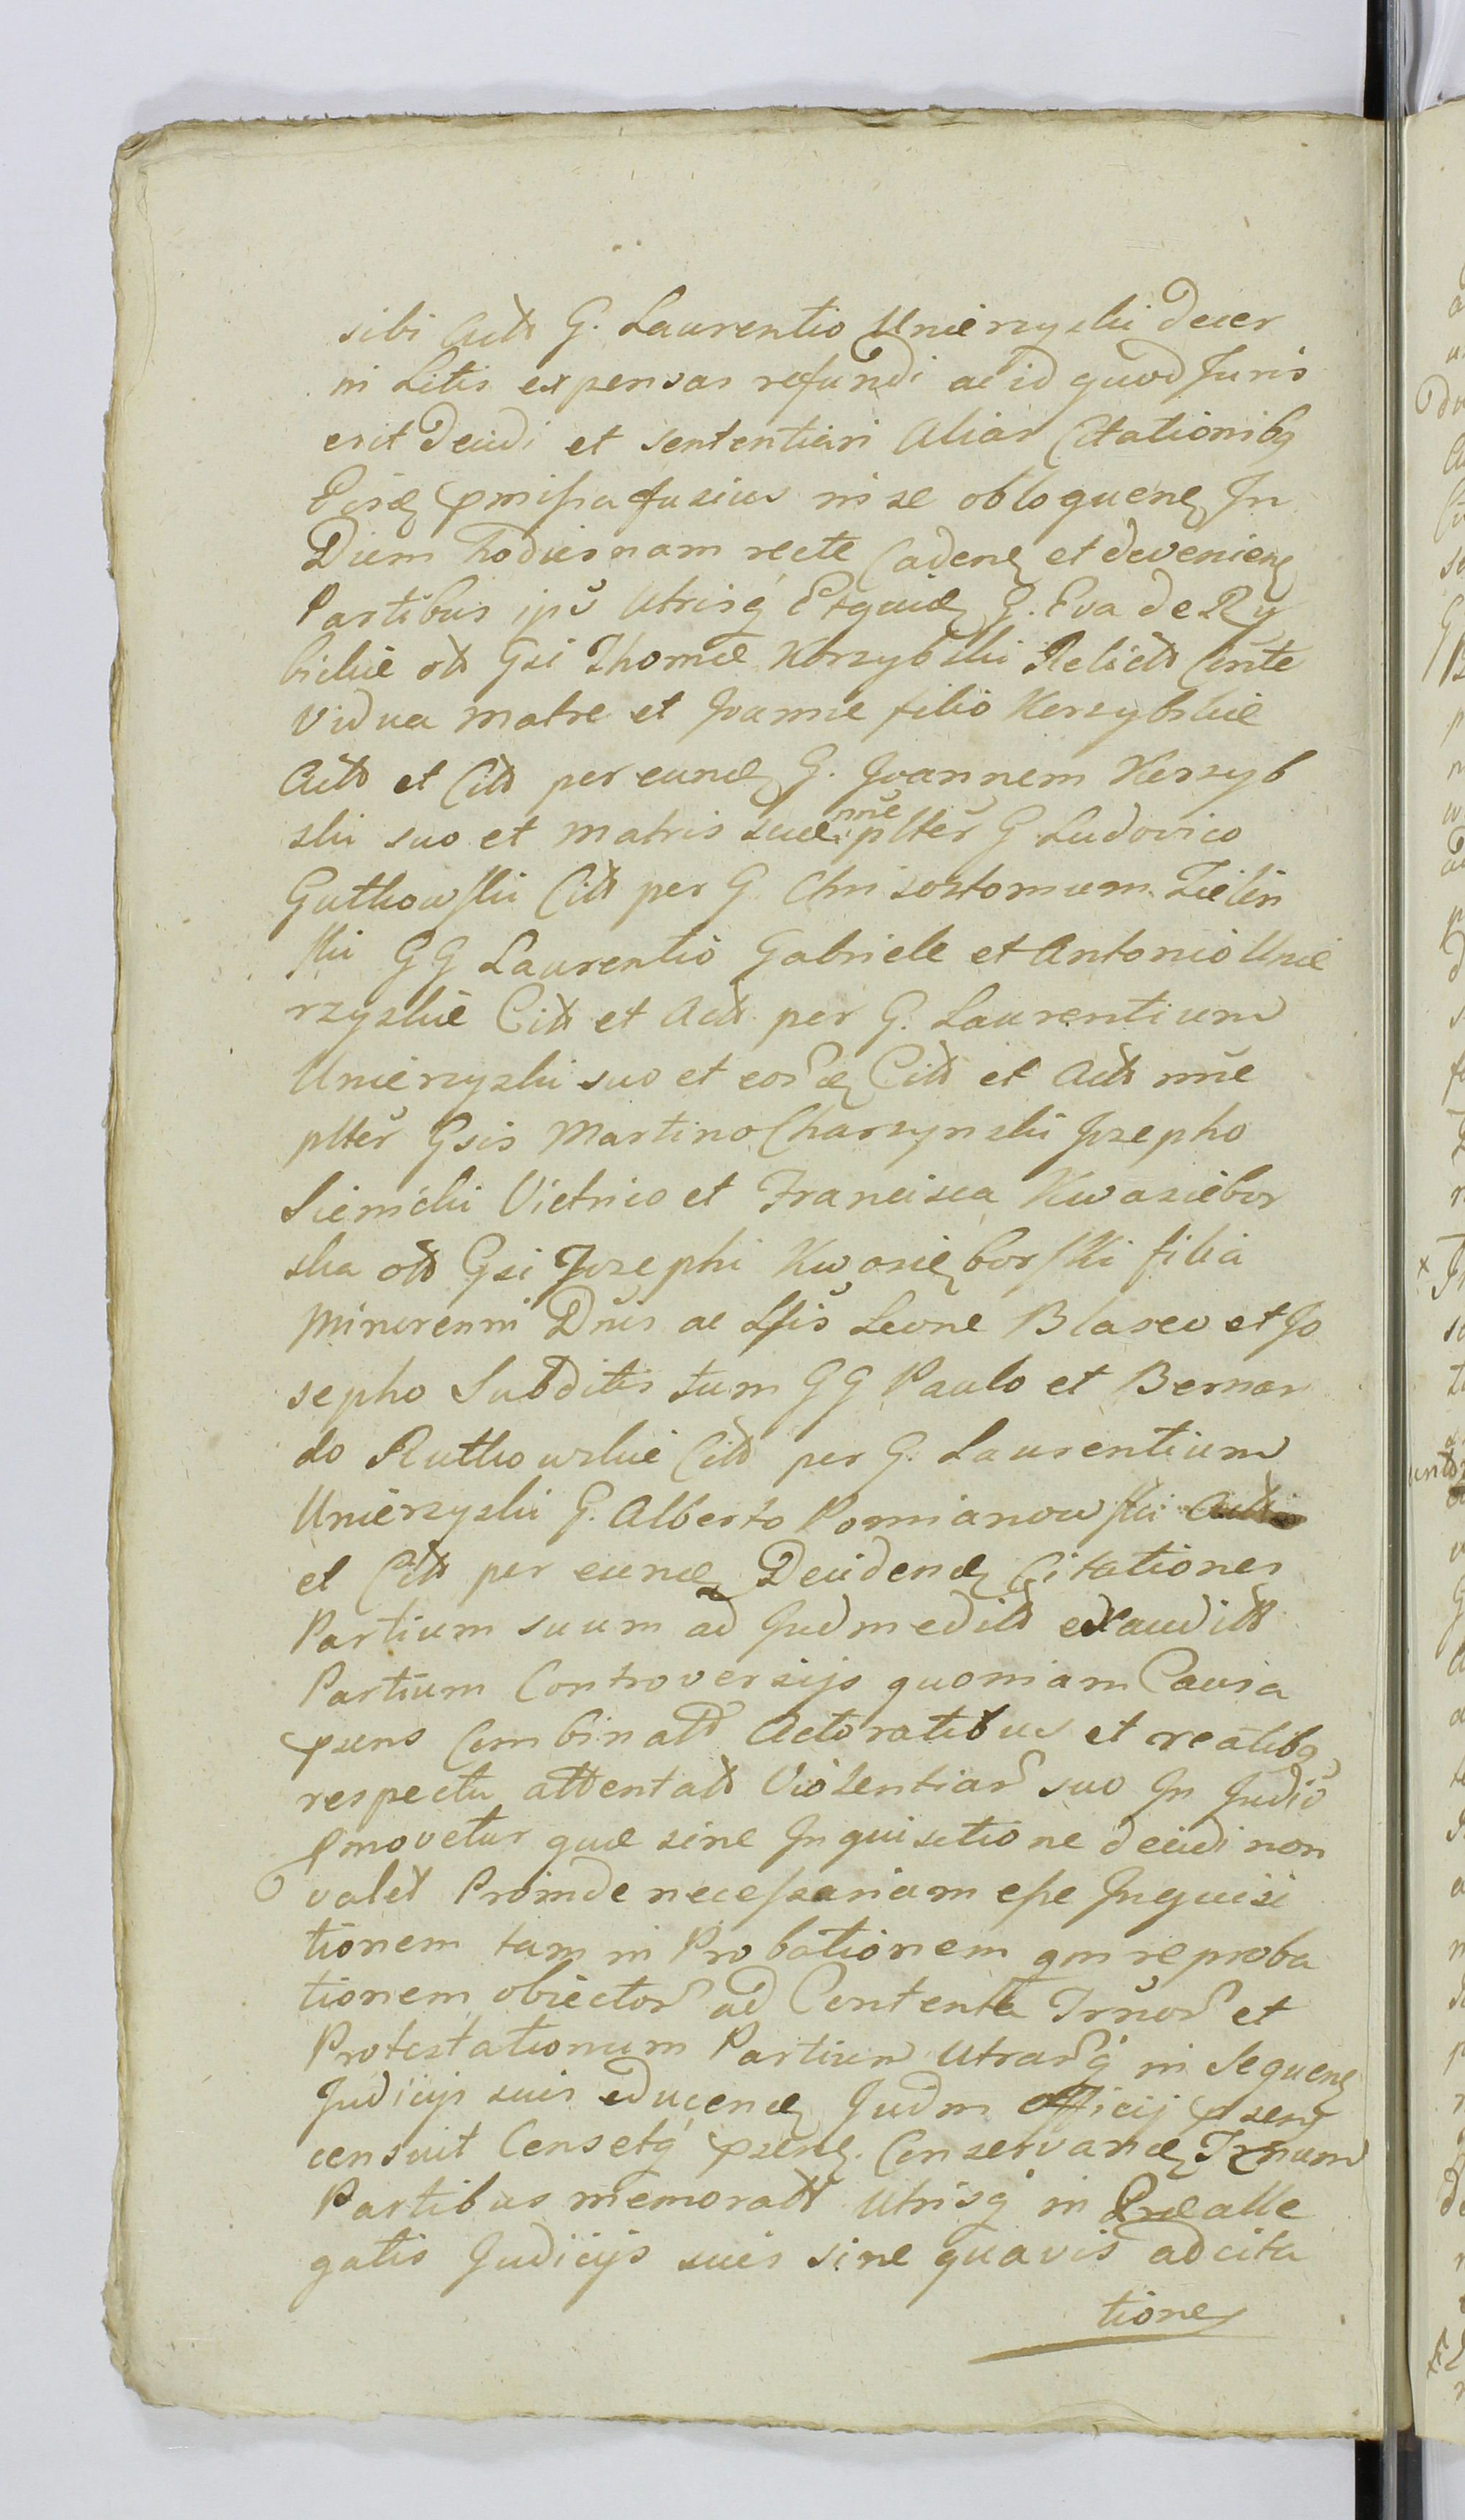 sibi Actt G. Laurentio Unierzyski decer
ni Litis expensas refundi ac id quod Juris
erit decidi et sententiari Alias Citationibq
Eisd pmissa fusius in se obloquen In
Diem hodiernam recte Caden et devenien
Partibus ipū Utrisq Et quid G. Eva de Ry
bickie ott Gsi Thomæ Korzybski Relictt Cinte
Vidua matre et Joanne filio Korzybskie
Actt et Citt per eund G. Joannem Korzyb
ski suo et matris suæ nne plter G Ludovico
Gutkowski Citt per G. Chrisostomum Zielin
ski GG Laurentio Gabriele et Antonio Unie
rzyskie Citt et Actt per G. Laurentium
Unierzyski suo et eord Citt et Actt nne
plter Gsis Martino Charzynski Jozepho
Sienicki Vietrico et Francisca Kwasiebor
ska ott Gsi Jozephi Kwasieborski filia
Minorenni Dnis ac Lsis Leone Blaseo et Jo
sepho Subditis tum GG Paulo et Bernar
do Rutkowskie Citt per G. Laurentium
Unierzyski G. Alberto Pomianowski Actt
et Citt per eund Deciden Citationes
Partium suum ad Judm editt exauditt
Partium Controversijs quoniam Causa
psens Combinatt Actoratibus et reatibq
respectu attentatt Violentiar suo In Judio
pmovetur quæ sine Inquisitione decidi non
valet Proinde necessariam esse Inquisi
tionem tam in Probationem qm reproba
tionem obiector ad Contenta Trnor et
Protestationum Partium Utrarq in Sequen
Judicijs suis educend Judm Officij psens
censuit Censetq psen Conservand Trnum
Partibus memoratt Utrisq in Præalle
gatis Judicijs suis sine quavis adcita
tione